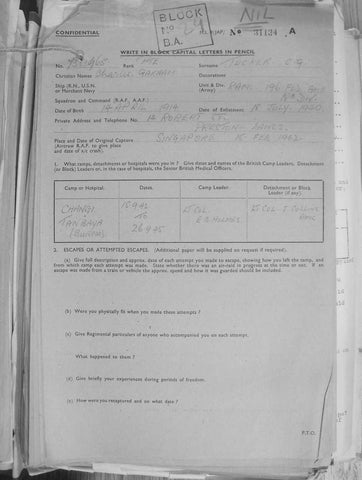 BLOCK
No
B.A.
NIL
CONFIDENTIAL
No 31124 A
WRITE IN BLOCK CAPITAL LETTERS IN PENCIL
No. Rank PTE Surname TUCKER C.G.
Christian Names Decorations
Ship (R.N., U.S.N. or Merchant Navy) Unit & Div. (Army) RAMC 196 FLD AMB
Squadron and Command (R.A.F., A.A.F.)
Date of Birth 14 APRIL 1914 Date of Enlistment 18 JULY 1940
Private Address and Telephone No. 14 ROBERT ST.
PRESTON LANCS.
Place and Date of Original Capture SINGAPORE 15 FEB 1942
(Aircrew R.A.F. to give place and date of a/c crash).
1. What camps, detachments or hospitals were you in? Give dates and names of the British Camp Leaders, Detachment (or Block) Leaders or, in the case of hospitals, the Senior British Medical Officers.
Camp or Hospital. Dates. Camp Leader. Detachment or Block Leader (if any).
CHANGI LT COL LT COL T COLLINS
TO E B HOLMES RAMC
TANBAYA 26 9 45
(BURMA)
2. ESCAPES OR ATTEMPTED ESCAPES. (Additional paper will be supplied on request if required).
(a) Give full description and approx. date of each attempt you made to escape, showing how you left the camp, and from which camp each attempt was made. State whether there was an air-raid in progress at the time or not. If an escape was made from a train or vehicle the approx. speed and how it was guarded should be included.
(b) Were you physically fit when you made these attempts?
(c) Give Regimental particulars of anyone who accompanied you on each attempt.
What happened to them?
(d) Give briefly your experiences during periods of freedom.
(e) How were you recaptured and on what date?
P.T.O.